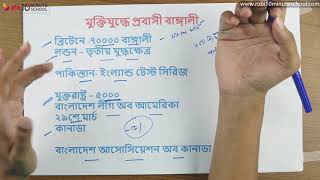 রবি 10 MINUTE SCHOOL
www.robi10minuteschool.com
মুক্তিযুদ্ধে প্রবাসী বাঙ্গালী
ব্রিটেনে -৭০০০০ বাঙ্গালী
লন্ডন - তৃতীয় যুদ্ধক্ষেত্র
পাকিস্তান- ইংল্যান্ড টেস্ট সিরিজ
যুক্তরাষ্ট্র - ৫০০০
বাংলাদেশ লীগ অব আমেরিকা
২৯শে মার্চ
কানাডা
বাংলাদেশ আসোসিয়েশন অব কানাডা